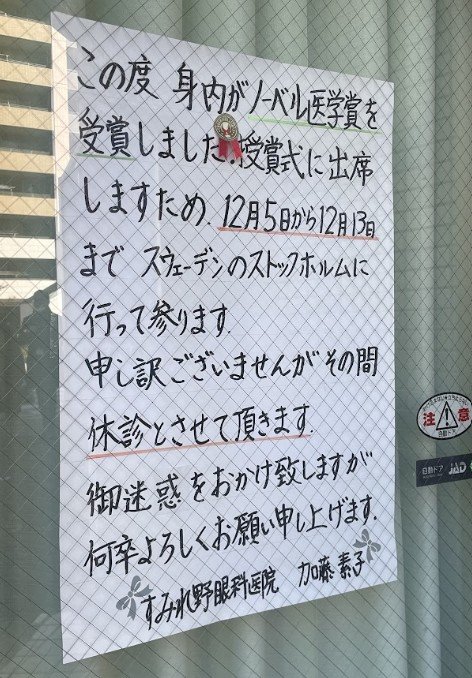 この度 身内がノーベル医学賞を
受賞しました.授賞式に出席
しますため.12月5日から12月13日
まで スウェーデンのストックホルムに
行って参ります.
申し訳ございませんがその間
休診とさせて頂きます.
御迷惑をおかけ致しますが
何卒よろしくお願い申し上げます.
すみれ野眼科医院 加藤素子
注意
自動ドア
自動ドア JAD